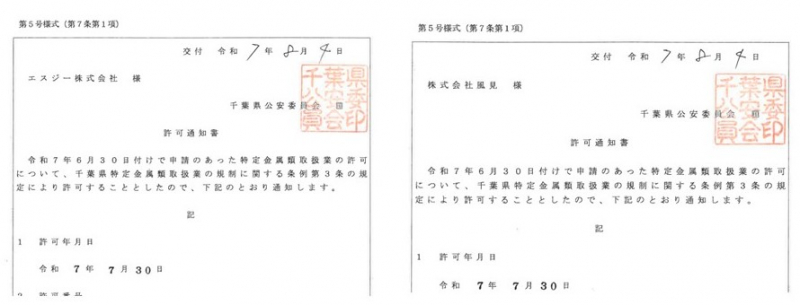 第5号様式（第7条第1項）
交付 令和 7 年 8 月 4 日
エスジー株式会社 様
千葉県公安委員会 印
千葉県公安委員会印
許可通知書
令和7年6月30日付けで申請のあった特定金属類取扱業の許可
について、千葉県特定金属類取扱業の規制に関する条例第3条の規
定により許可することとしたので、下記のとおり通知します。
記
1 許可年月日
令和 7 年 7 月 30 日
2 許可番号
第5号様式（第7条第1項）
交付 令和 7 年 8 月 4 日
株式会社風見 様
千葉県公安委員会 印
千葉県公安委員会印
許可通知書
令和7年6月30日付けで申請のあった特定金属類取扱業の許可
について、千葉県特定金属類取扱業の規制に関する条例第3条の規
定により許可することとしたので、下記のとおり通知します。
記
1 許可年月日
令和 7 年 7 月 30 日